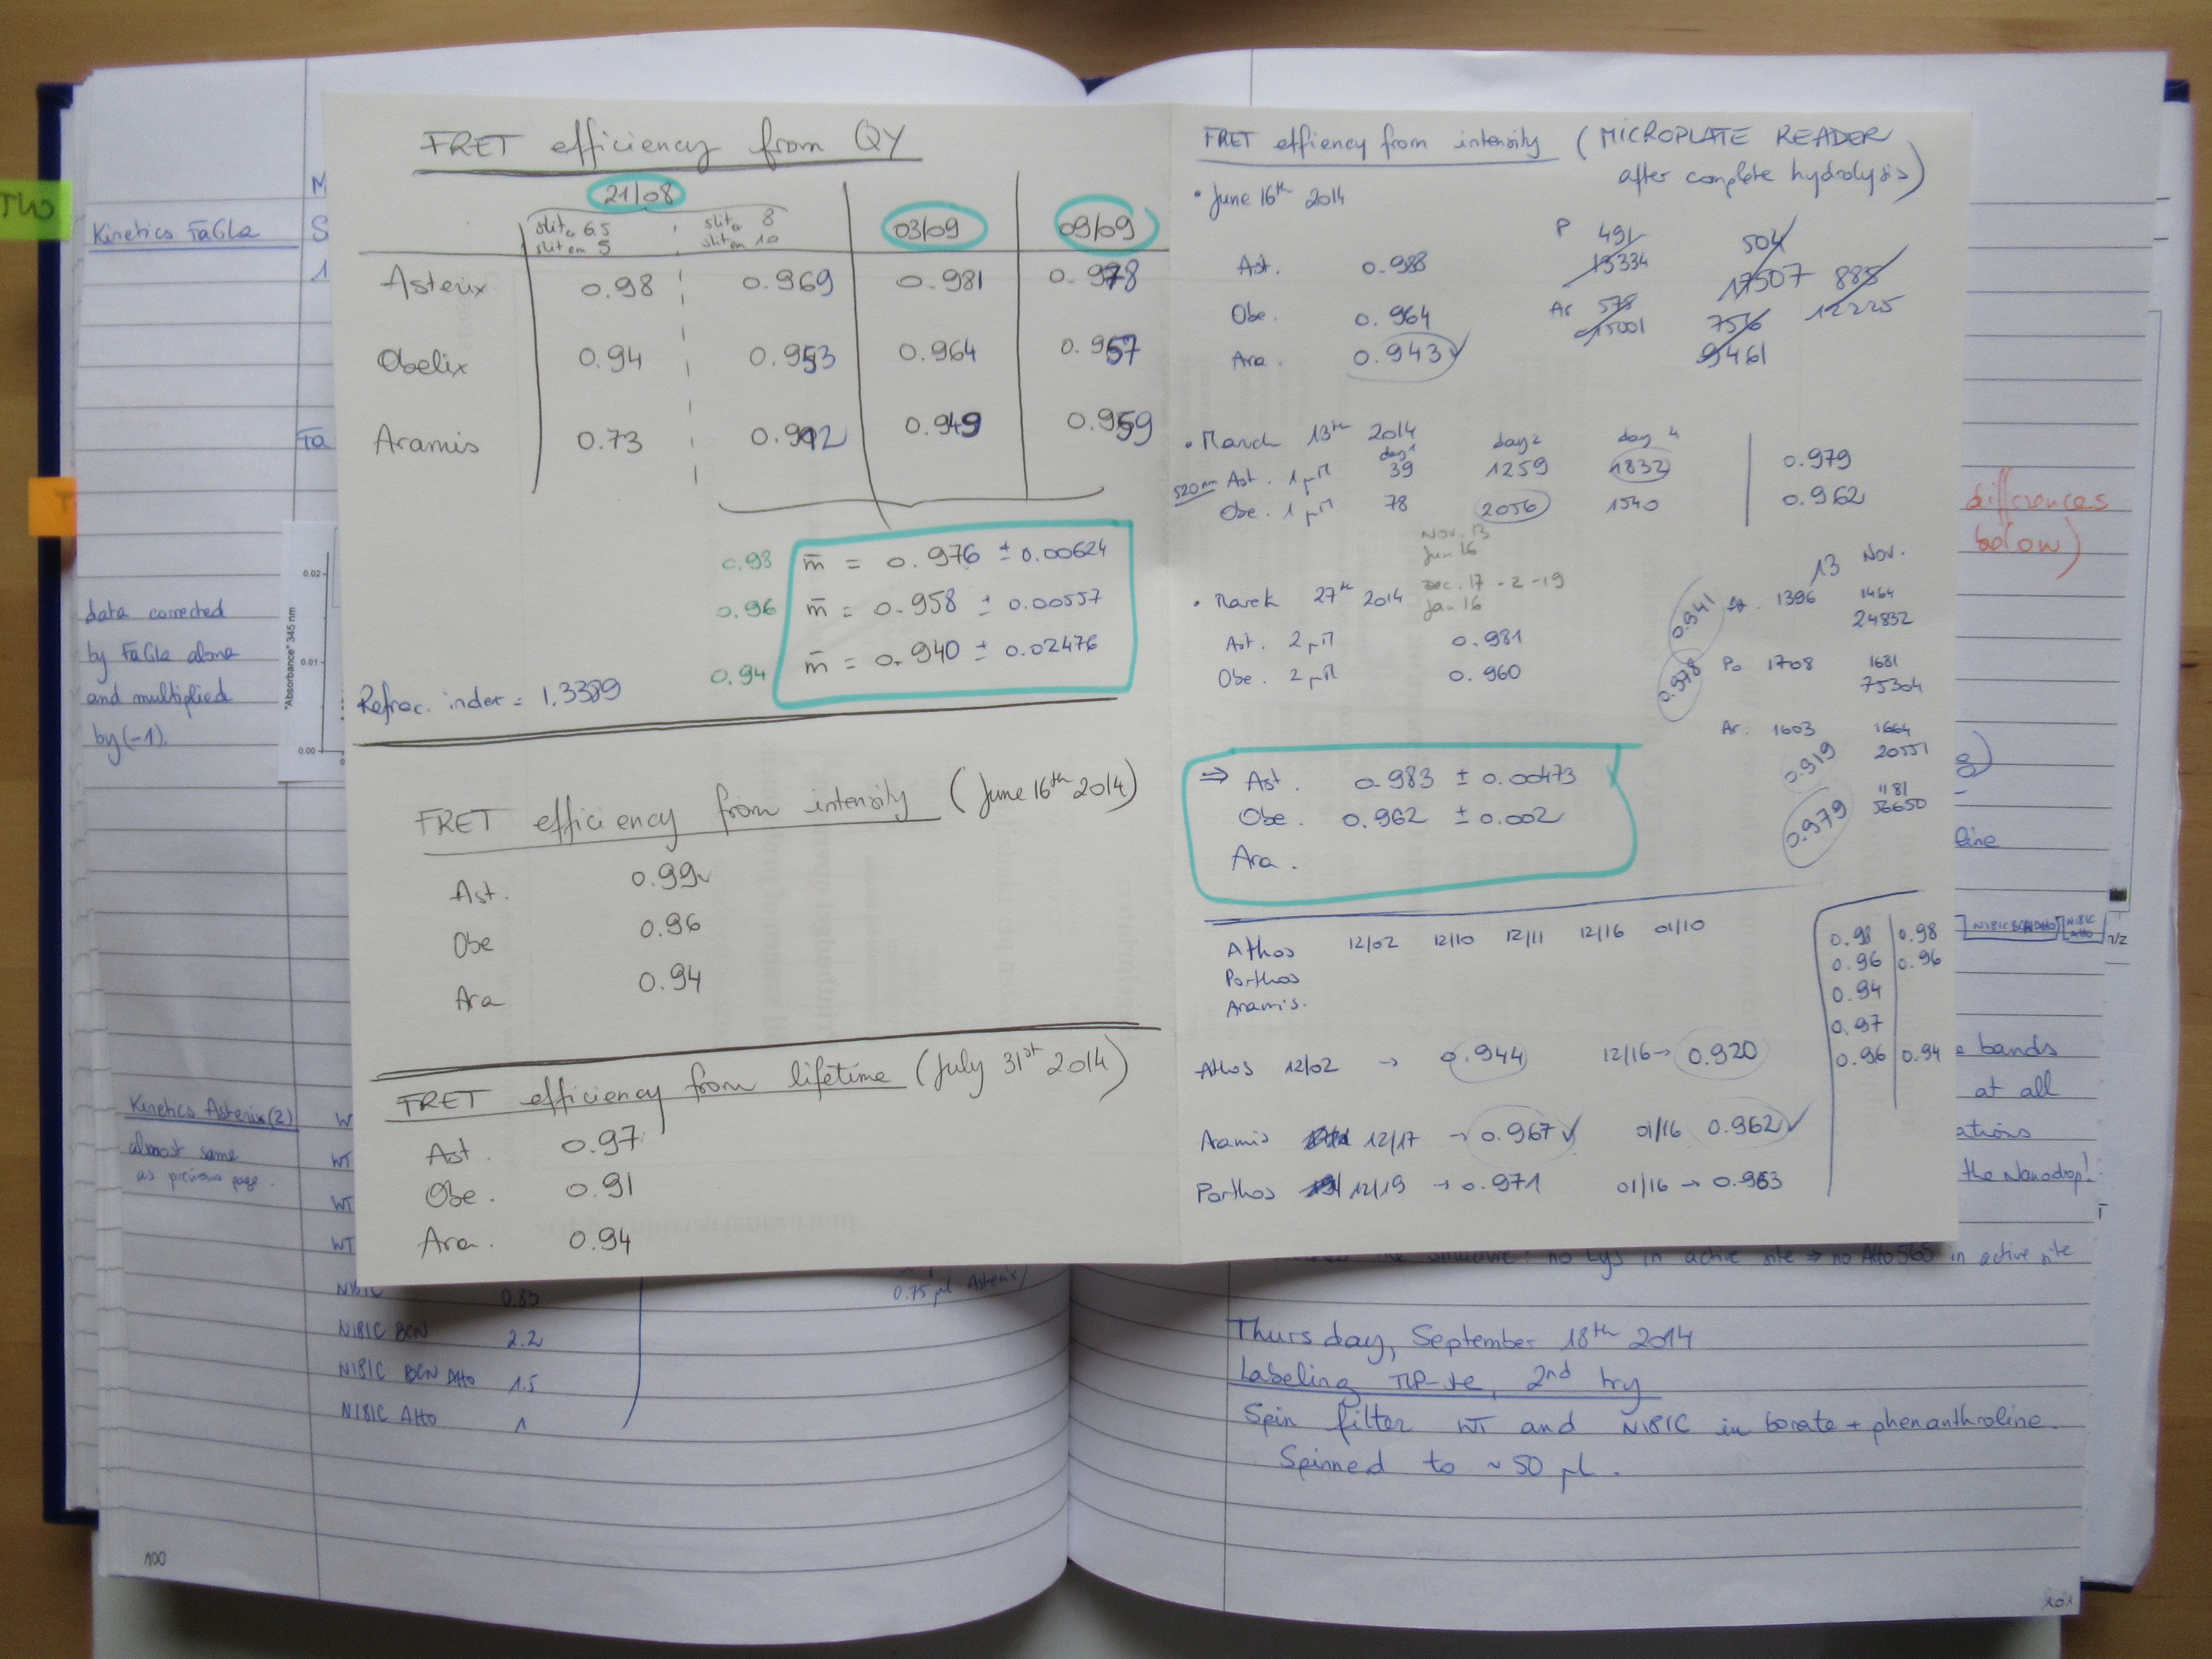 FRET efficiency from QY
21/08
slit 6.5
slit em 5
slit 8
slit em 10
03/09
09/09
Asterix 0.98 0.969 0.981 0.978
Obelix 0.94 0.953 0.964 0.957
Aramis 0.73 0.912 0.949 0.959
0.98 m̄ = 0.976 ± 0.00624
0.96 m̄ = 0.958 ± 0.00557
0.94 m̄ = 0.940 ± 0.02476
Refrac. index = 1.3389
FRET efficiency from intensity (June 16th 2014)
Ast. 0.99
Obe 0.96
Ara 0.94
FRET efficiency from lifetime (July 31st 2014)
Ast. 0.97
Obe. 0.91
Ara. 0.94
FRET effiency from intensity (MICROPLATE READER
after complete hydrolysis)
• June 16th 2014
Ast. 0.988
Obe. 0.964
Ara. 0.943 ✓
P 491
13334
504
17507
885
12225
Ar 578
15001
756
9461
• March 13th 2014
day 1 day 2 day 4
520nm Ast. 1 µM 39 1259 1832 0.979
Obe. 1 µM 78 2056 1540 0.962
Nov. 13
Jun 16
Dec. 17 - 2 - 19
Jan 16
• March 27th 2014
Ast. 2 µM 0.981
Obe. 2 µM 0.960
13 Nov.
0.941 1396 1464
24832
0.978 Po 1708 1681
75304
Ar. 1603 1664
20551
0.919
1181
56650
0.979
⇒ Ast. 0.983 ± 0.00473 ✓
Obe. 0.962 ± 0.002
Ara.
Athos 12/02 12/10 12/11 12/16 01/10
Porthos
Aramis.
0.98 0.98
0.96 0.96
0.94
0.97
0.96 0.94
Athos 12/02 → 0.944 12/16 → 0.920
Aramis 12/17 → 0.967 ✓ 01/16 0.962 ✓
Porthos 12/19 → 0.971 01/16 → 0.963
Kinetics FaGLa
M
S
1
data corrected
by FaGLa alone
and multiplied
by (-1).
"Absorbance" 345 nm
0.02
0.01
0.00
0
Kinetics Asterix (2)
almost same
as previous page.
W
WT
WT
WT
N181C 0.83
N181C BCN 2.2
N181C BCN Atto 1.5
N181C Atto 1
0.75 µl Asterix)
100
differences
below)
line
N181C BCN Atto
N181C Atto
m/z
bands
at all
the Nanodrop!
no Lys in active site ⇒ no Atto565 in active site
Thursday, September 18th 2014
Labeling TLP-ste, 2nd try
Spin filter WT and N181C in borate + phenanthroline.
Spinned to ~ 50 µL.
101